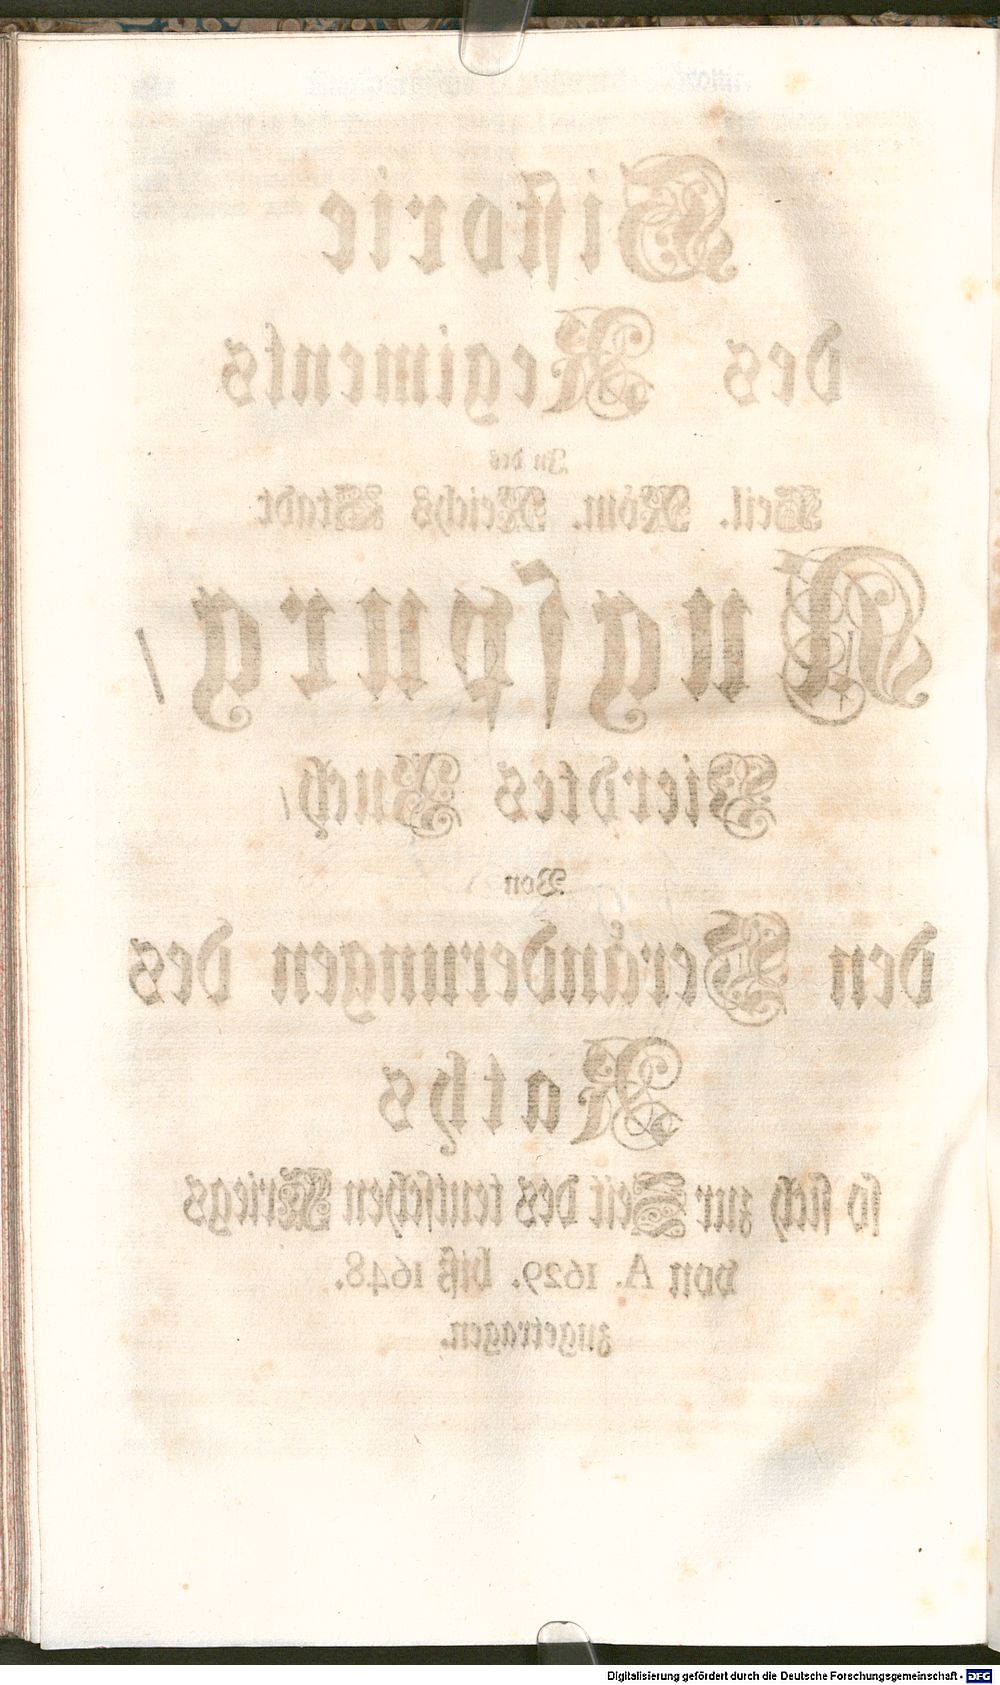 Historie
des Regiments
In des
Heil. Röm. Reichs Stadt
Augspurg/
Vierdtes Buch/
Von
den Veränderungen des
Raths
so sich zur Zeit des teutschen Kriegs
von A. 1629. biß 1648.
zugetragen.
Digitalisierung gefördert durch die Deutsche Forschungsgemeinschaft - DFG